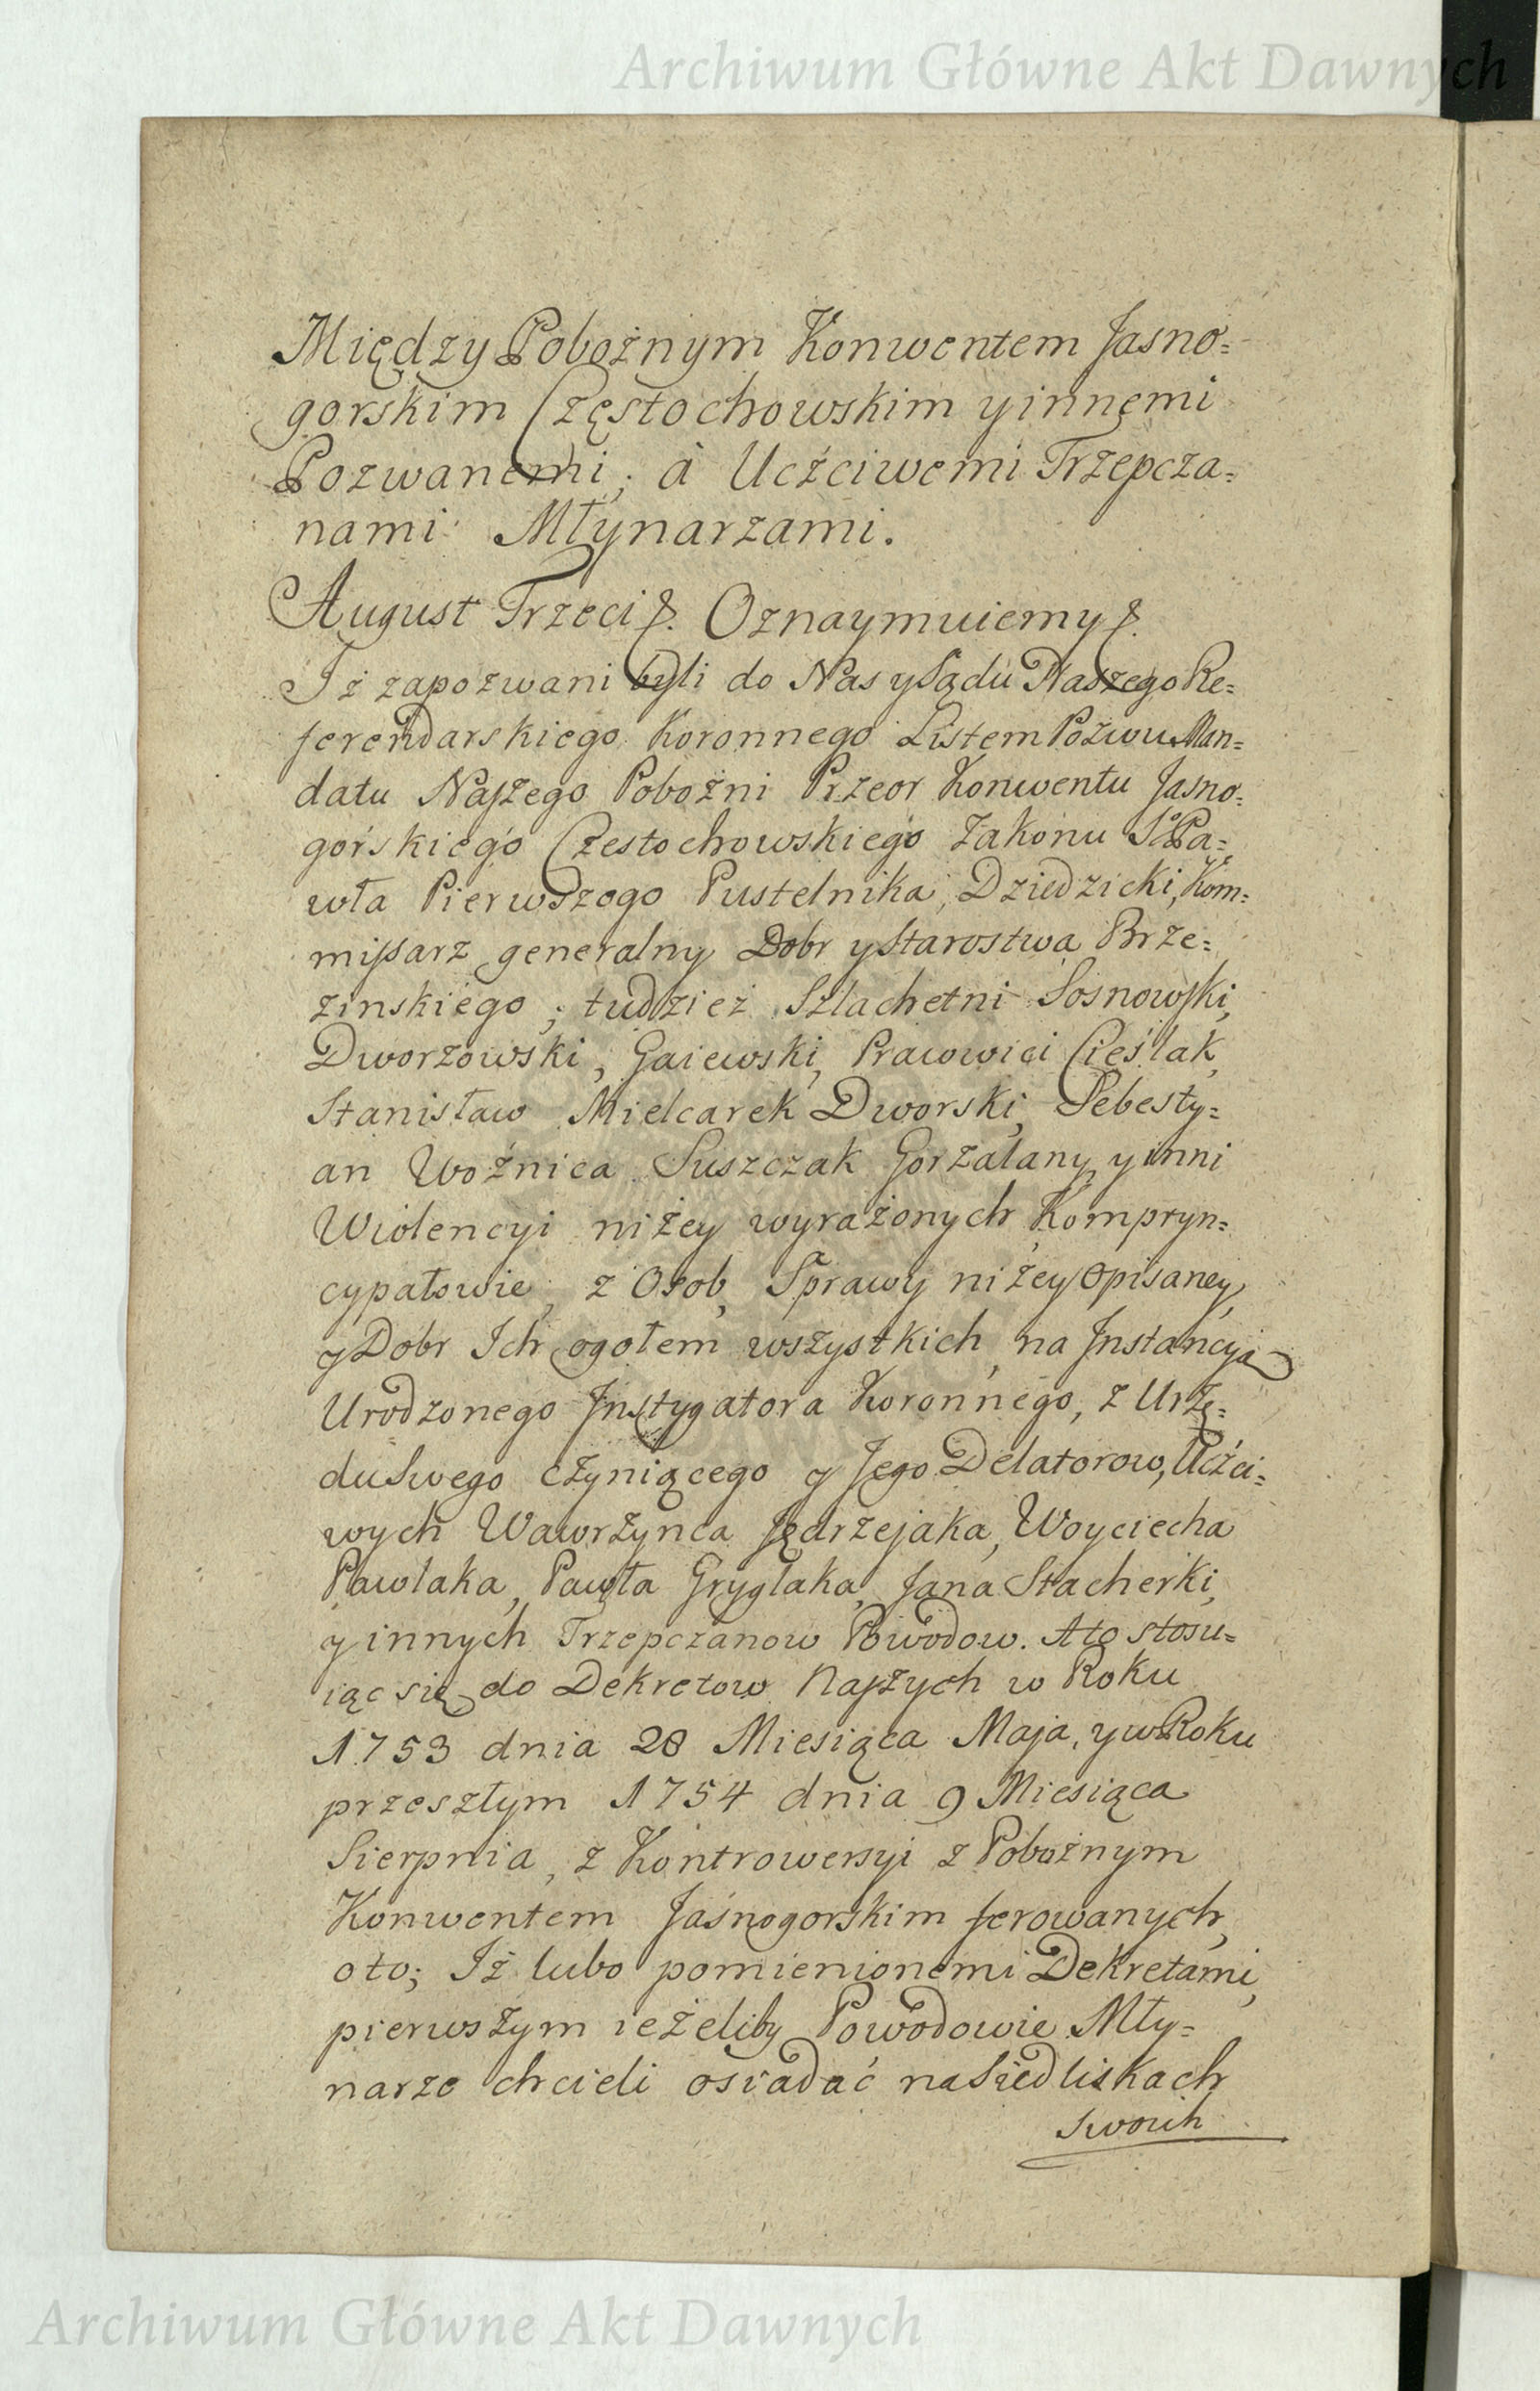 Archiwum Główne Akt Dawnych
Między Pobożnym Konwentem Jasno=
gorskim Częstochowskim y innęmi
Pozwanemi; à Ucżciwemi Trzepcza=
nami Młynarzami.
August Trzeci &. Oznaymuiemy &.
Iż zapozwani byli do Nas y Sądu Naszego Re=
ferendarskiego Koronnego Listem Pozwu Man=
datu Naszego Pobożni Przeor Konwentu Jasno=
gorskiego Częstochowskiego Zakonu So Pa=
wła Pierwszego Pustelnika, Dziedzicki, Kom=
missarz generalny Dobr y Starostwa Brze=
zinskiego; tudzież Szlachetni Sosnowski,
Dworzowski, Gaiewski, Pracowici Cieślak,
Stanisław Mielcarek Dworski, Sebesty=
an Woźnica Suszczak Gorzalany y inni
Wiolencyi niżey wyrażonych Kompryn=
cypałowie, z Osob, Sprawy niżey opisaney,
y Dobr Ich ogołem wszystkich, na Jnstancyą
Urodzonego Jnstygatora Koronnego, z Urzę=
du Swego czyniącego y Jego Delatorow, Ucżci=
wych Wawrzynca Jędrzejaka, Woyciecha
Pawlaka, Pawła Gryglaka, Jana Stacherki,
y innych Trzepczanow Powodow. A to stosu=
iąc się do Dekretow Naszych w Roku
1753 dnia 28 Miesiąca Maja, y w Roku
przeszłym 1754 dnia 9 Miesiąca
Sierpnia, z Kontrowersyi z Pobożnym
Konwentem Jaśnogorskim ferowanych,
oto; Iż lubo pomienionemi Dekretami,
pierwszym ieżeliby Powodowie Mły=
narze chcieli osiadać na Siedliskach
Swoich
Archiwum Główne Akt Dawnych